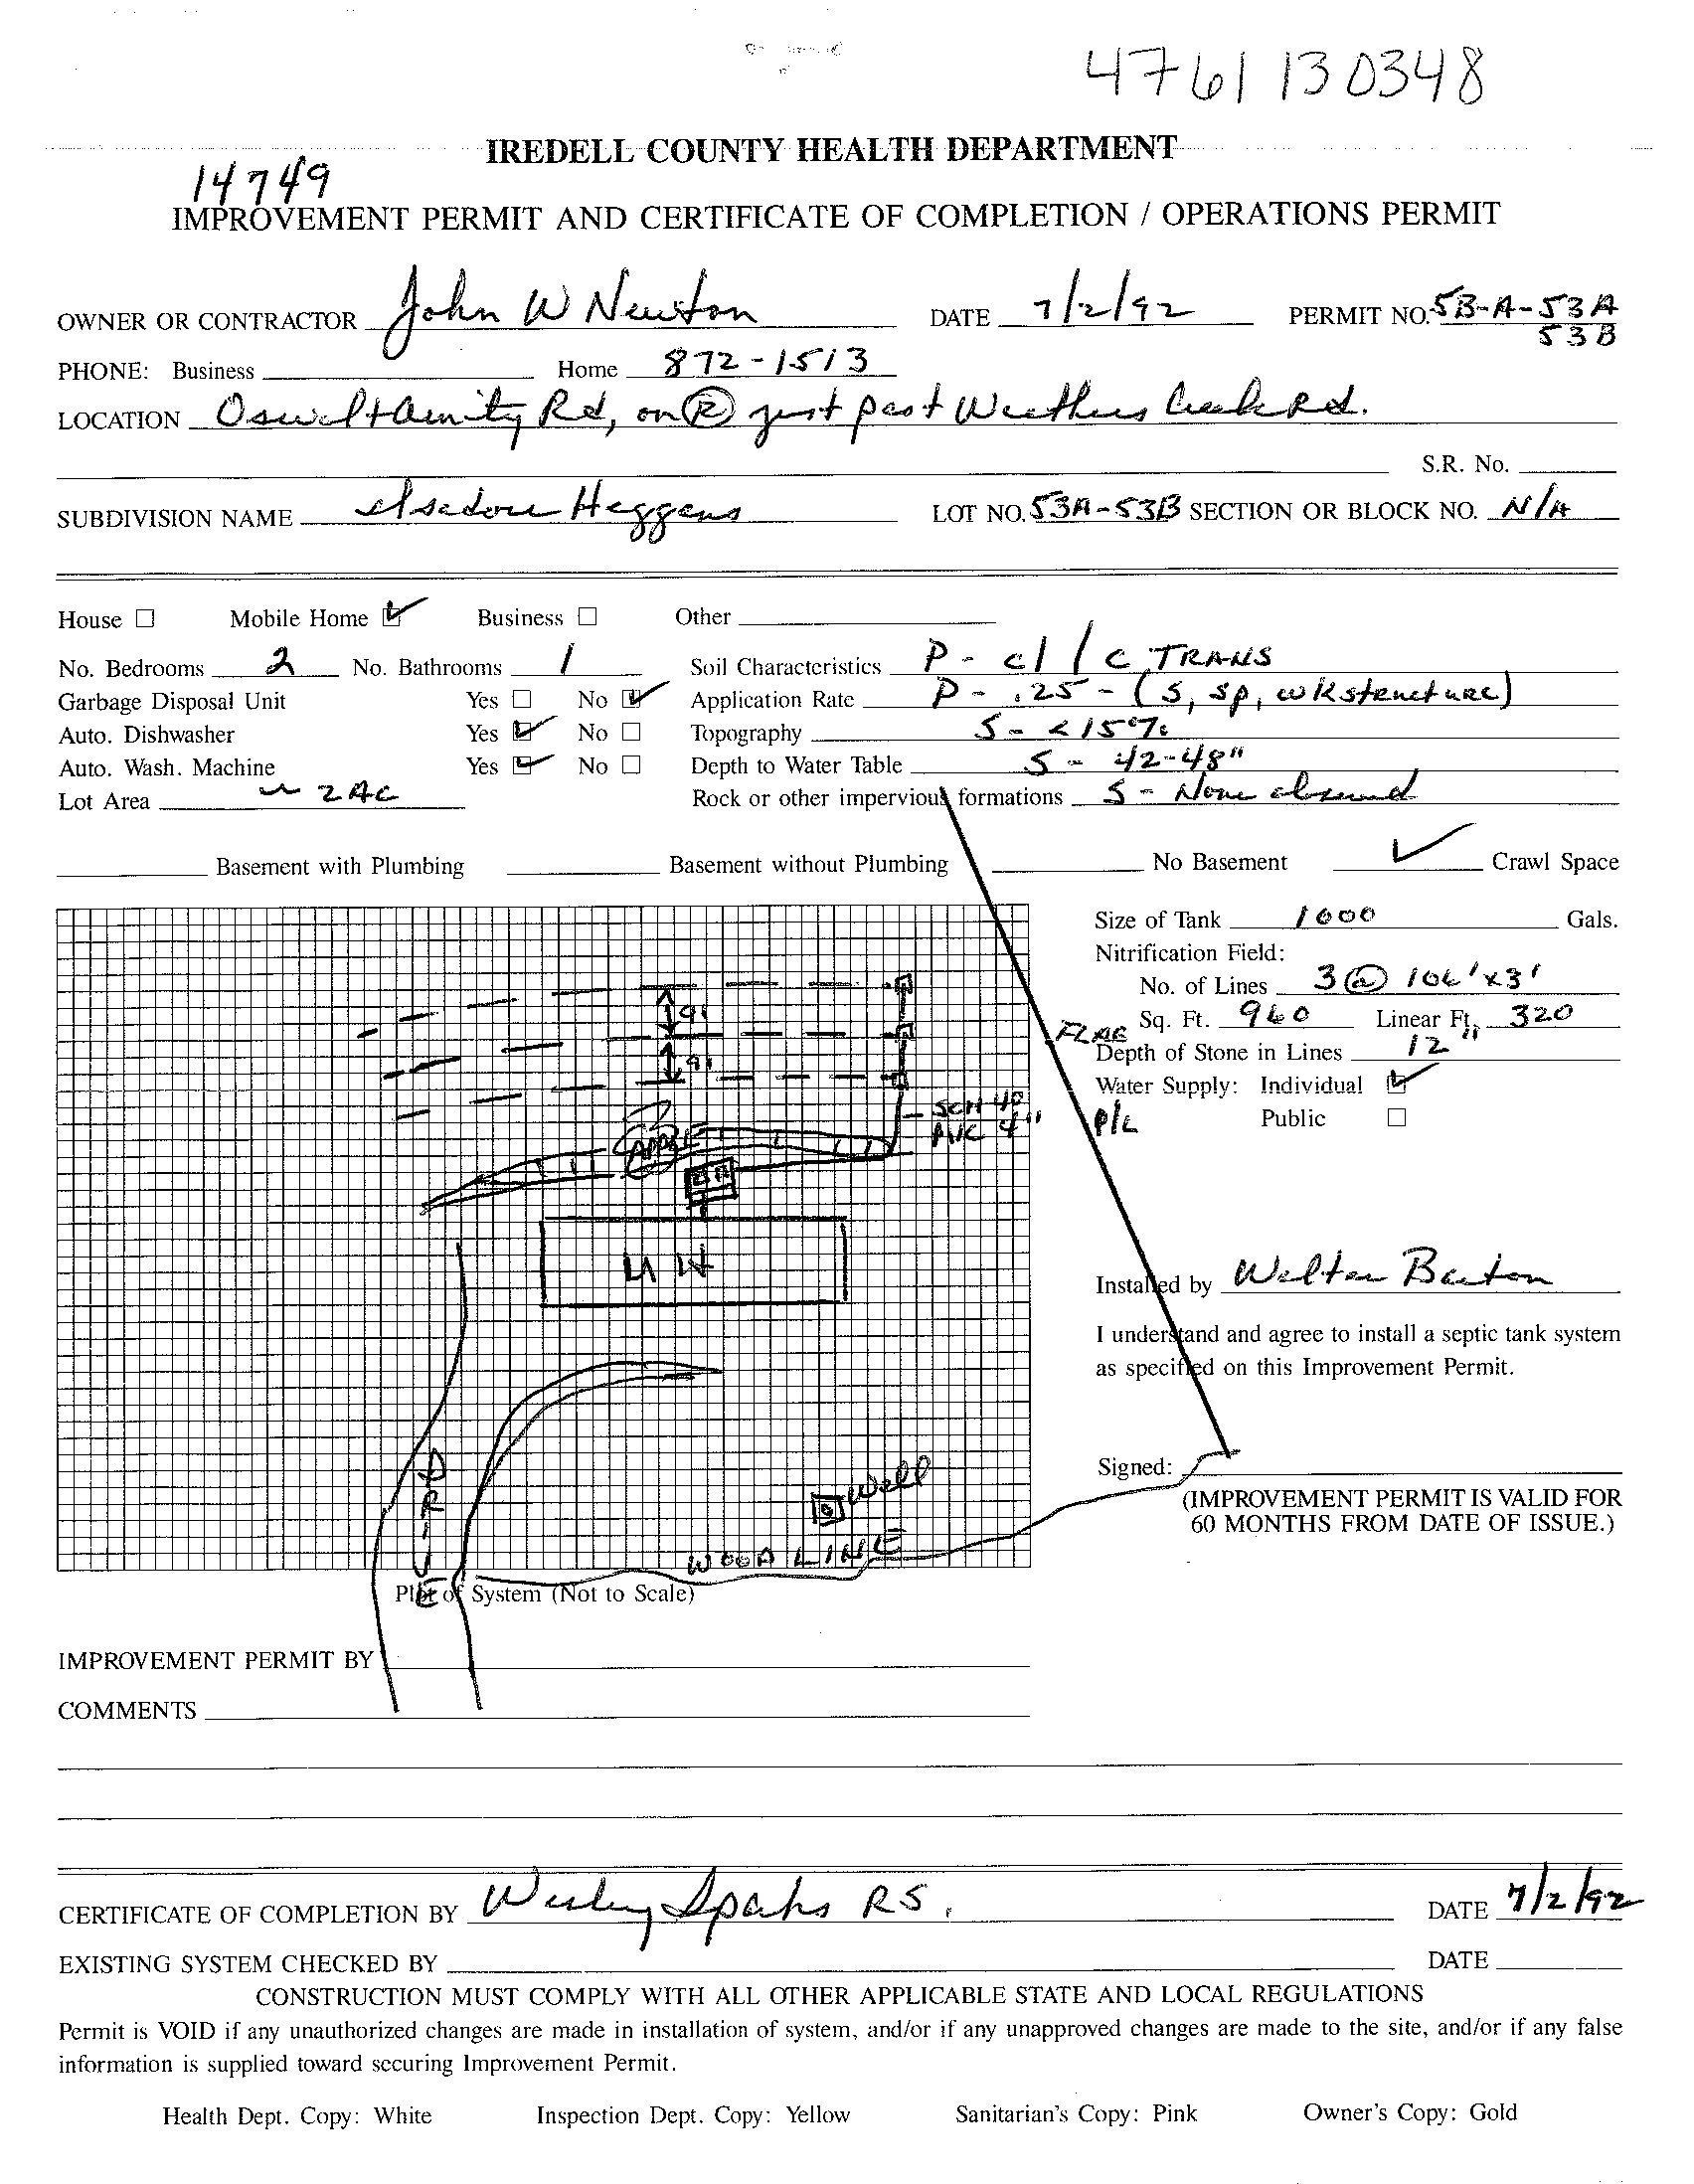 4761 130348
IREDELL COUNTY HEALTH DEPARTMENT
14749
IMPROVEMENT PERMIT AND CERTIFICATE OF COMPLETION / OPERATIONS PERMIT
OWNER OR CONTRACTOR John W Newton DATE 7/2/92 PERMIT NO. 5B-A-53A
53B
PHONE: Business Home 872-1513
LOCATION Oswalt Amity Rd, on R just past Weathers Creek Rd.
S.R. No.
SUBDIVISION NAME Isadore Heggens LOT NO. 53A-53B SECTION OR BLOCK NO. N/A
House Mobile Home Business Other
No. Bedrooms 2 No. Bathrooms 1 Soil Characteristics P - cl / c TRANS
Garbage Disposal Unit Yes No Application Rate P - .25 - (s, sp, wk structure)
Auto. Dishwasher Yes No Topography S - <15%
Auto. Wash. Machine Yes No Depth to Water Table S - 42-48"
Lot Area ~ 2 AC Rock or other impervious formations S - None observed
Basement with Plumbing Basement without Plumbing No Basement Crawl Space
Size of Tank 1000 Gals.
Nitrification Field:
No. of Lines 3 @ 106'x3'
9'
Sq. Ft. 960 Linear Ft. 320
FLAG
Depth of Stone in Lines 12"
9'
Water Supply: Individual
SCH 40
PVC 4"
P/L
Public
APPLE
MH
Installed by Walter Barton
I understand and agree to install a septic tank system
as specified on this Improvement Permit.
DRIVE
Signed:
Well
(IMPROVEMENT PERMIT IS VALID FOR
60 MONTHS FROM DATE OF ISSUE.)
WOOD LINE
Plot of System (Not to Scale)
IMPROVEMENT PERMIT BY
COMMENTS
CERTIFICATE OF COMPLETION BY Wesley Sparks RS. DATE 7/2/92
EXISTING SYSTEM CHECKED BY DATE
CONSTRUCTION MUST COMPLY WITH ALL OTHER APPLICABLE STATE AND LOCAL REGULATIONS
Permit is VOID if any unauthorized changes are made in installation of system, and/or if any unapproved changes are made to the site, and/or if any false
information is supplied toward securing Improvement Permit.
Health Dept. Copy: White Inspection Dept. Copy: Yellow Sanitarian's Copy: Pink Owner's Copy: Gold